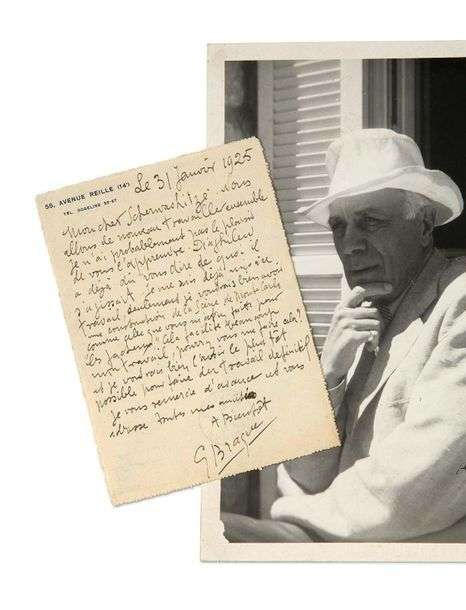 55, AVENUE REILLE (14e)
TEL. GOBELINS
Le 31 Janvier 1925
Mon cher Schervachidzé Nous
allons de nouveau travailler ensemble
Je n'ai probablement pas le plaisir
de vous l'apprendre Diaghilew
a déjà dû vous dire de quoi il
s'agissait je me suis déjà mis au
travail seulement je voudrais bien avoir
une construction de la scène de Monte Carlo
comme celle que vous m'avez faite pour
les facheux cela facilite beaucoup
mon travail, pouvez vous me faire cela?
et je voudrais bien l'avoir le plus tôt
possible pour faire du travail définitif
je vous remercie d'avance et vous
adresse toutes mes amitiés
A Bientôt
G Braque